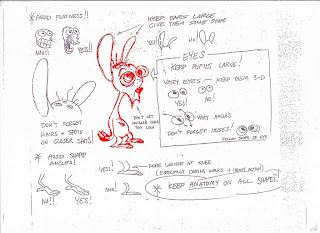 * AVOID FLATNESS!!
NO!!
YES!!
KEEP EARS LARGE
GIVE THEM SOME SHAPE
YES!
NO!
EYES
KEEP PUPILS LARGE!
VARY EYES — KEEP THEM 3-D
YES!
NO!
VARY ANGLES
DON'T FORGET IRISES!
FOLLOW SHAPE OF EYE
DON'T FORGET
HAIRS + SPOTS
ON CLOSER SHOTS!
DON'T LET
TOO LOW
* AVOID SHARP
ANGLES!
NO!!
YES!
YES!
NO!
MORE WEIGHT AT KNEE
(ESPECIALLY DURING WALKS + FRONT ACTION)
* KEEP ANATOMY ON ALL SHAPES!